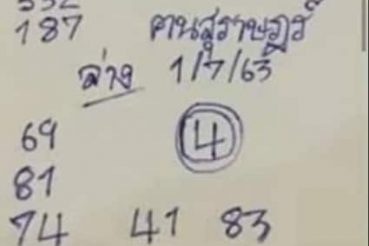 332
187 คนสุราษฎร์
ล่าง 1/7/63
69 4
81
74 41 83